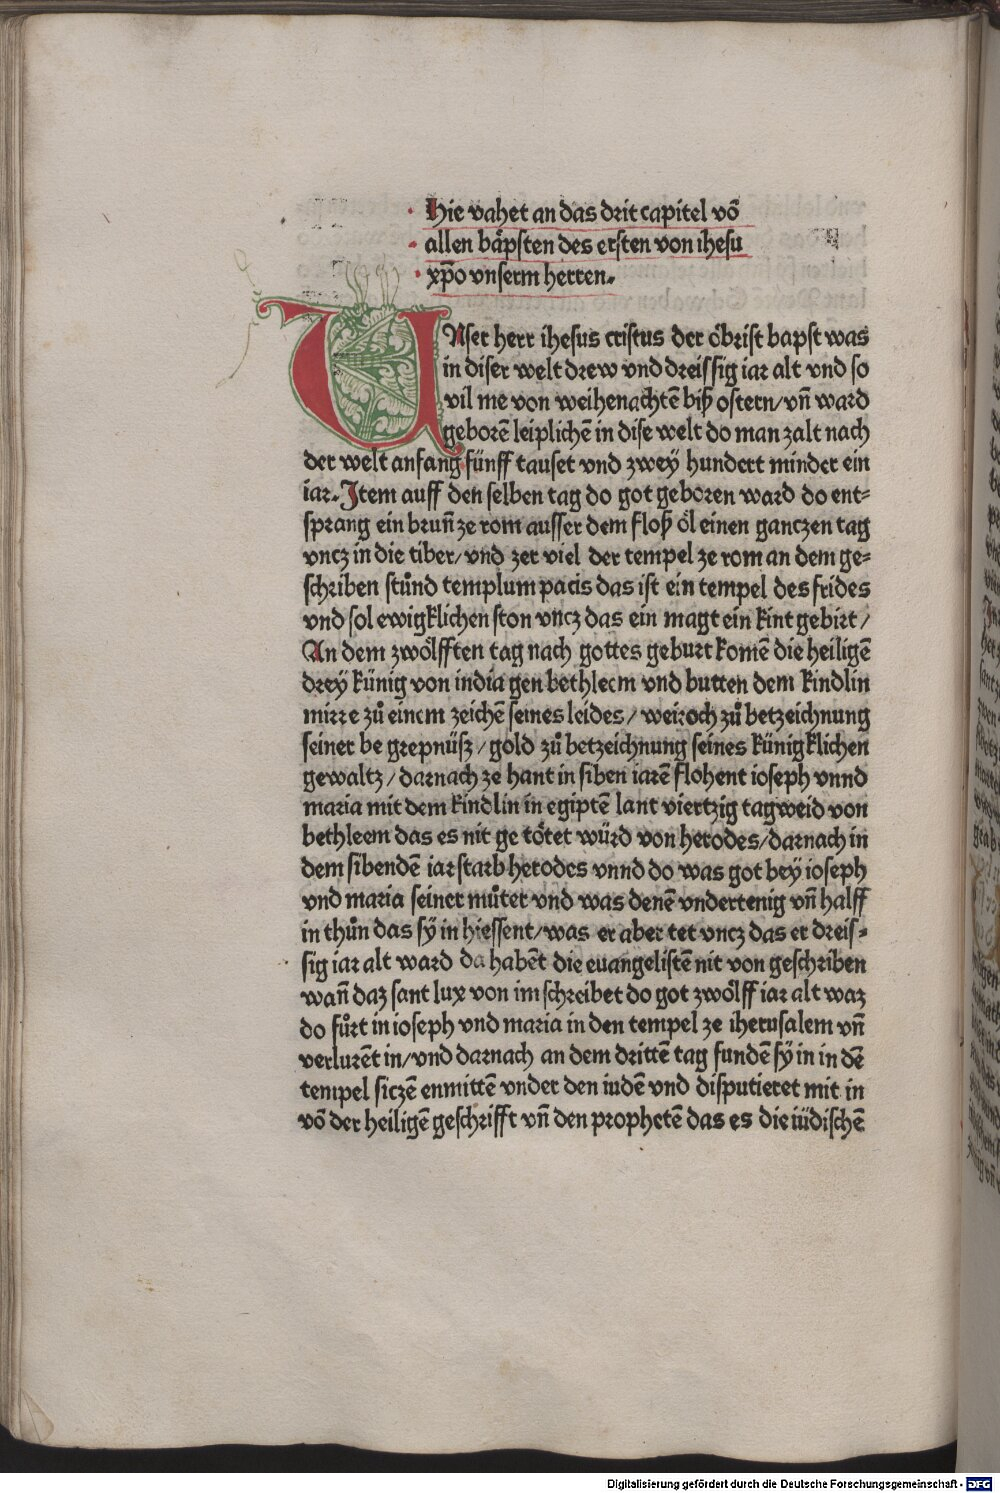 Hie vahet an das drit capitel vō
allen bäpsten des ersten von ihesu
xp̄o vnserm herren.
UNser herr ihesus cristus der öbrist bapst was
in diser welt drew vnd dreissig iar alt vnd so
vil me von weihenachtē biß ostern/vn̄ ward
geborē leiplichē in dise welt do man zalt nach
der welt anfang fünff tauset vnd zweÿ hundert minder ein
iar. Item auff den selben tag do got geboren ward do ent-
sprang ein brun̄ ze rom ausser dem floß öl einen ganczen tag
vncz in die tiber/vnd zer viel der tempel ze rom an dem ge-
schriben stůnd templum pacis das ist ein tempel des frides
vnd sol ewigklichen ston vncz das ein magt ein kint gebirt/
An dem zwölfften tag nach gottes geburt komē die heiligē
dreÿ künig von india gen bethleem vnd butten dem kindlin
mirre zů einem zeichē seines leides/weiroch zů betzeichnung
seiner be grepnüsz/gold zů betzeichnung seines künigklichen
gewaltz/darnach ze hant in siben iarē flohent ioseph vnnd
maria mit dem kindlin in egiptē lant viertzig tagweid von
bethleem das es nit ge tötet würd von herodes/darnach in
dem sibendē iar starb herodes vnnd do was got bey ioseph
vnd maria seiner můter vnd was denē vndertenig vn̄ halff
in thůn das sÿ in hiessent/was er aber tet vncz das er dreis-
sig iar alt ward da habēt die euangelistē nit von geschriben
wan̄ daz sant lux von im schreibet do got zwölff iar alt waz
do fůrt in ioseph vnd maria in den tempel ze iherusalem vn̄
verlurēt in/vnd darnach an dem drittē tag fundē sÿ in in dē
tempel siczē enmittē vnder den iudē vnd disputieret mit in
vō der heiligē geschrifft vn̄ den prophetē das es die iüdischē
Digitalisierung gefördert durch die Deutsche Forschungsgemeinschaft - DFG